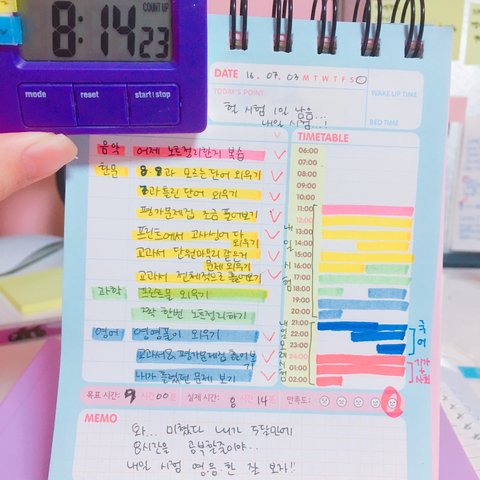 COUNT UP
8:14 23
mode reset start/stop
DATE 16. 07. 03 M T W T F S
TODAY'S POINT
WAKE UP TIME
헐 시험 1일 남음...
내일 시험...!
BED TIME
TIMETABLE
음악 어제 노트정리한거 복습
한문 8. 9과 모르는 단어 외우기
7과 틀린 단어 외우기
평가문제집 조금 풀어보기
프린트에서 고사성어 다 외우기
교과서 단원마무리 같은거 문제 외우기
교과서 전체적으로 훑어보기
과학 프린트물 외우기
과학 한번 노트정리하기
영어 영영풀이 외우기
교과서&평가문제집 풀어보기
내가 틀렸던 문제 보기
06:00
07:00
08:00
09:00
10:00
11:00
12:00
13:00
14:00
15:00
16:00
17:00
18:00
19:00
20:00
21:00
22:00
23:00
24:00
01:00
02:00
내일시험
국어
기가+사회
목표 시간: 9 시간 00 분 실제 시간: 8 시간 14 분 만족도:
MEMO
와... 미쳤다 내가 5달만에
8시간을 공부할줄이야...
내일 시험 영.음.한 잘 보자!!